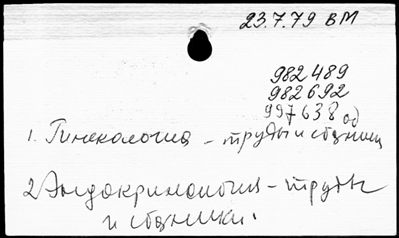 23.7.79 ВМ
982489
982692
997638 од
1. Гинекология – труды и сборники
2. Эндокринология – труды
и сборники.